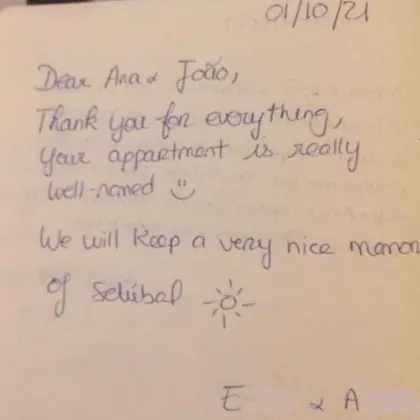 01/10/21
Dear Ana & João,
Thank you for everything,
Your appartment is really
well-named :)
We will keep a very nice memor
of Setúbal
E & A